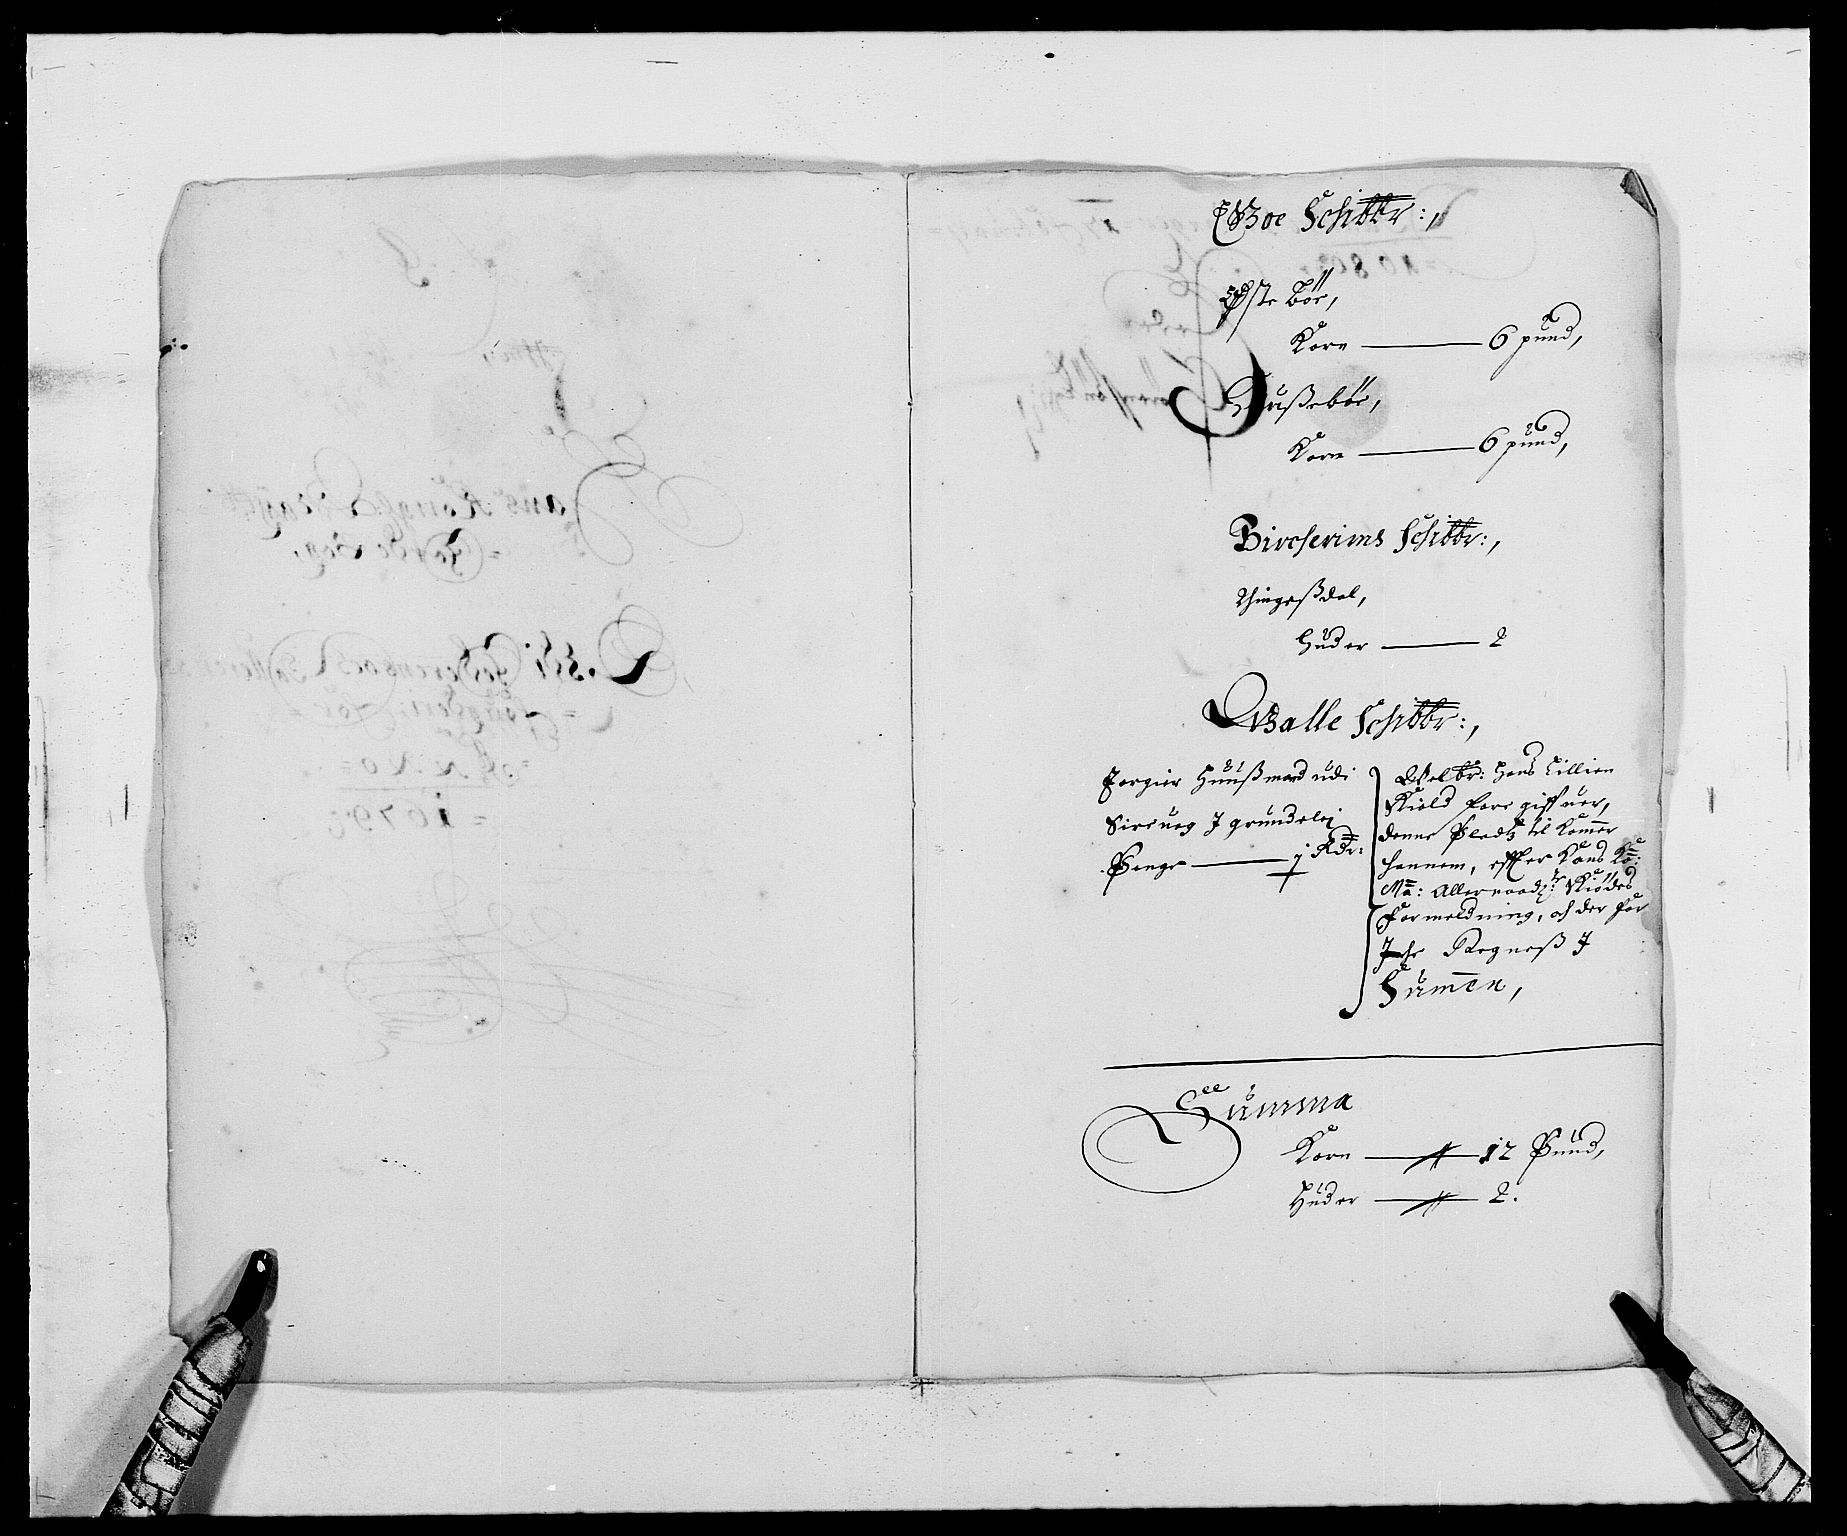 Boe Schibbr:,
Øfste bøe,
Korn — 6 pund,
Dußebøe,
Korn — 6 pund,
Bircherims Schibbr:,
Thingeßdal,
Huder — 2
Walle Schibbr:,
Jorgier Huußmand udi
Sireuog J grundelej
Penge — j Rdr:
Welbr: Hans Lillien
Skiold foregiffuer,
denne Pladtz til kommer
hannem, effter Hans Ko:
Ma: Allernaadgste Skiødes
formeldning, och der for
Jche Regneß J
Summen,
Summa
Korn — 12 Pund,
Huder — 2.